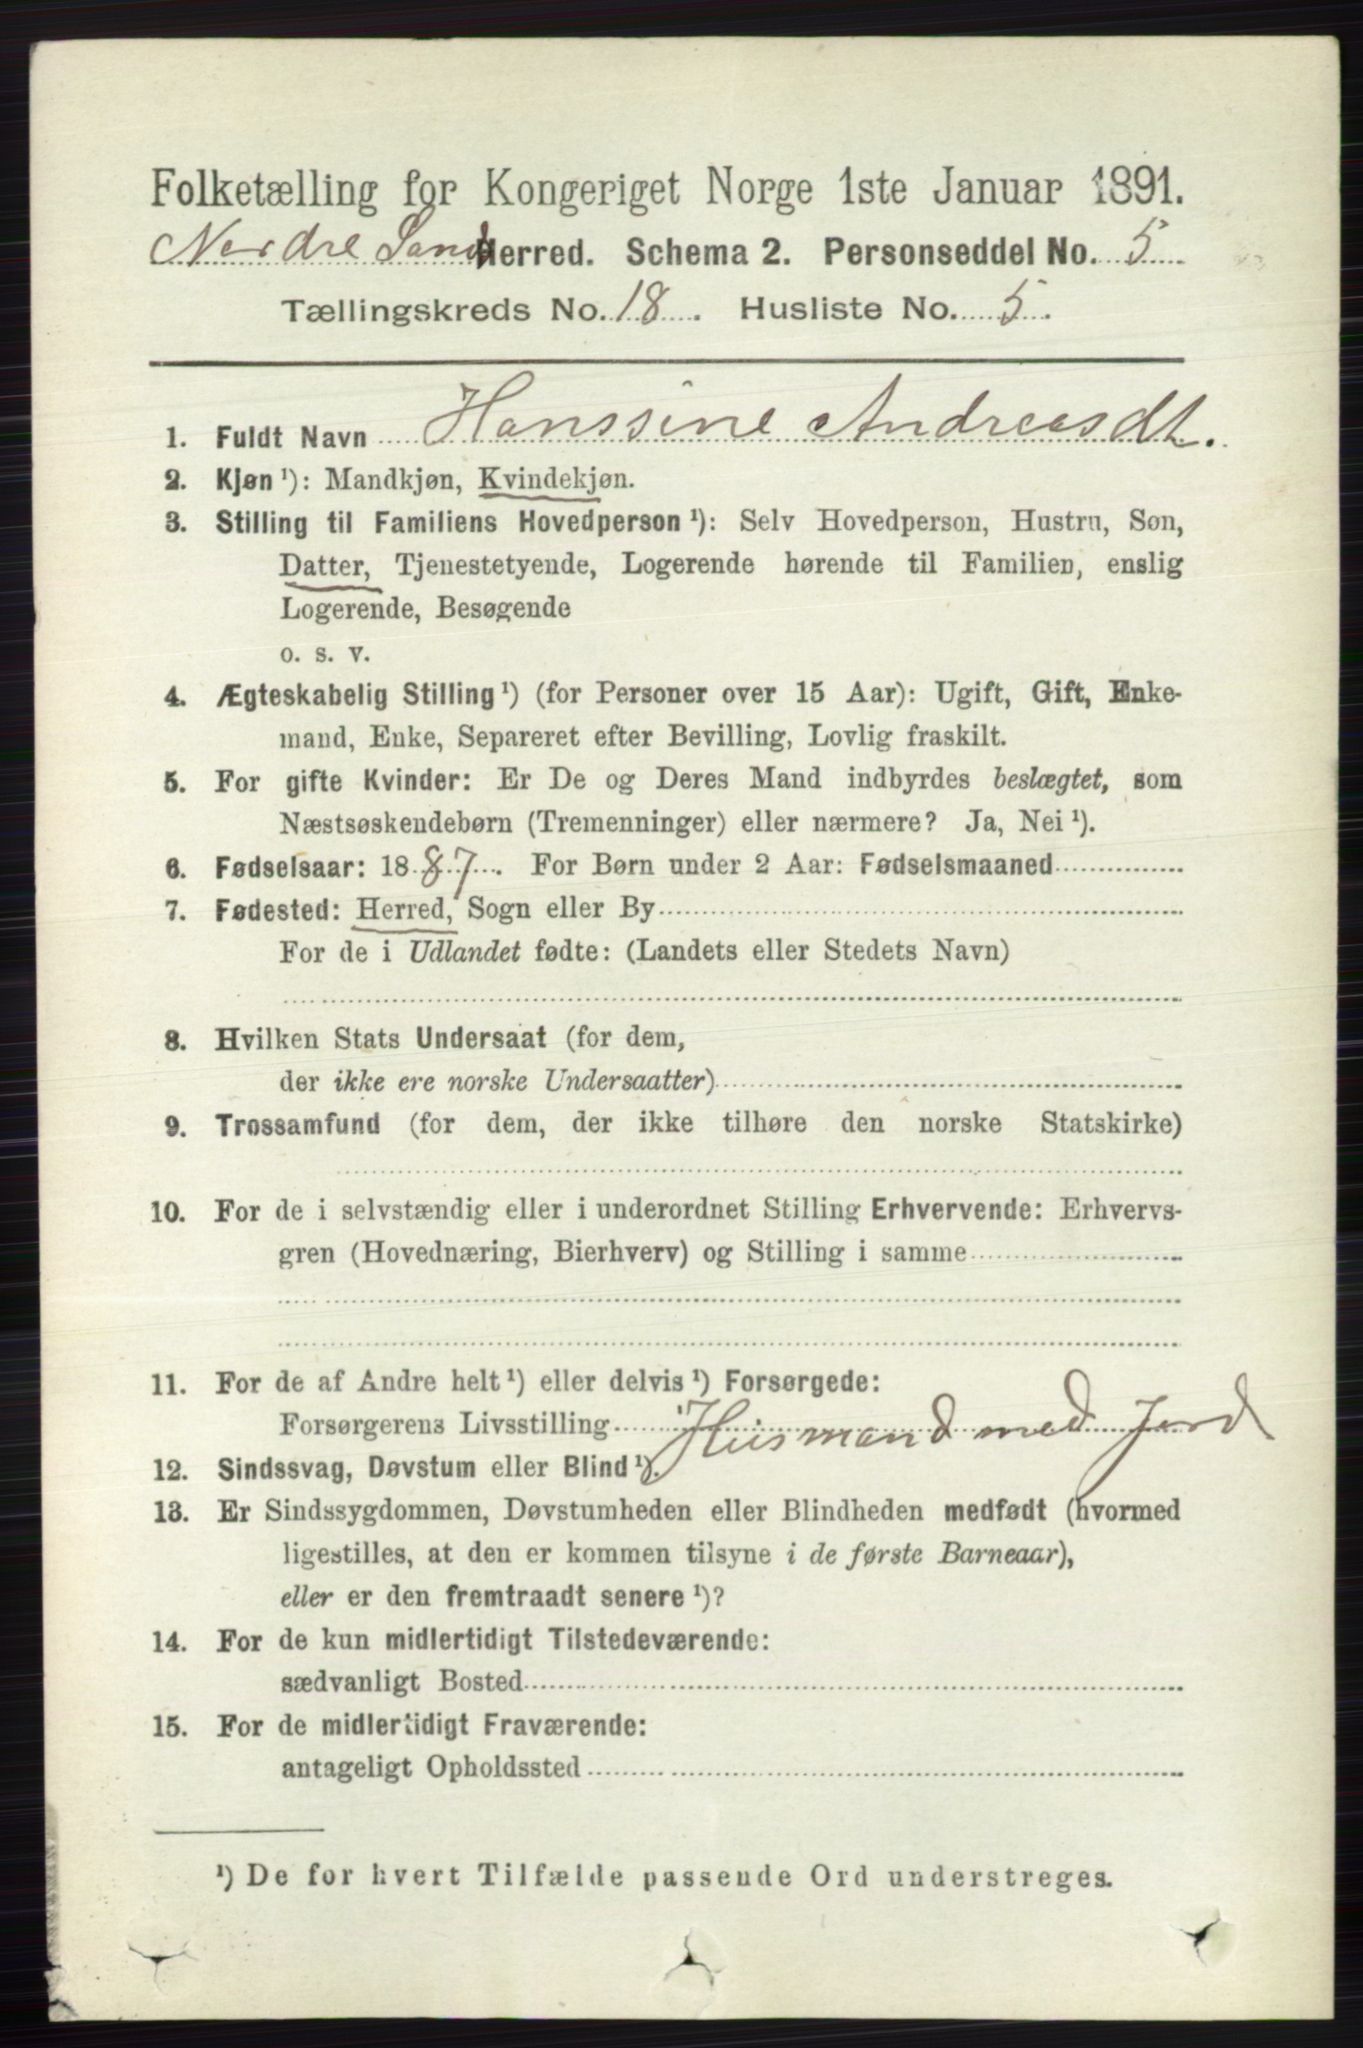 Folketælling for Kongeriget Norge 1ste Januar 1891.
Nordre Land Herred. Schema 2. Personseddel No. 5
Tællingskreds No. 18. Husliste No. 5.
1. Fuldt Navn Hanssine Andreasdt.
2. Kjøn¹): Mandkjøn, Kvindekjøn.
3. Stilling til Familiens Hovedperson¹): Selv Hovedperson, Hustru, Søn,
Datter, Tjenestetyende, Logerende hørende til Familien, enslig
Logerende, Besøgende
o. s. v.
4. Ægteskabelig Stilling¹) (for Personer over 15 Aar): Ugift, Gift, Enke-
mand, Enke, Separeret efter Bevilling, Lovlig fraskilt.
5. For gifte Kvinder: Er De og Deres Mand indbyrdes beslægtet, som
Næstsøskendebørn (Tremenninger) eller nærmere? Ja, Nei¹).
6. Fødselsaar: 1887. For Børn under 2 Aar: Fødselsmaaned
7. Fødested: Herred, Sogn eller By
For de i Udlandet fødte: (Landets eller Stedets Navn)
8. Hvilken Stats Undersaat (for dem,
der ikke ere norske Undersaatter)
9. Trossamfund (for dem, der ikke tilhøre den norske Statskirke)
10. For de i selvstændig eller i underordnet Stilling Erhvervende: Erhvervs-
gren (Hovednæring, Bierhverv) og Stilling i samme
11. For de af Andre helt¹) eller delvis¹) Forsørgede:
Forsørgerens Livsstilling Husmand med Jord
12. Sindssvag, Døvstum eller Blind¹).
13. Er Sindssygdommen, Døvstumheden eller Blindheden medfødt (hvormed
ligestilles, at den er kommen tilsyne i de første Barneaar),
eller er den fremtraadt senere¹)?
14. For de kun midlertidigt Tilstedeværende:
sædvanligt Bosted
15. For de midlertidigt Fraværende:
antageligt Opholdssted
¹) De for hvert Tilfælde passende Ord understreges.